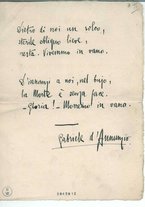 Dietro di noi un solco,
sterile obliquo lieve,
resta. Vivemmo in vano.
D'innanzi a noi, nel bujo,
la Morte è senza face.
- Gloria! - Morremo in vano.
Gabriele d'Annunzio